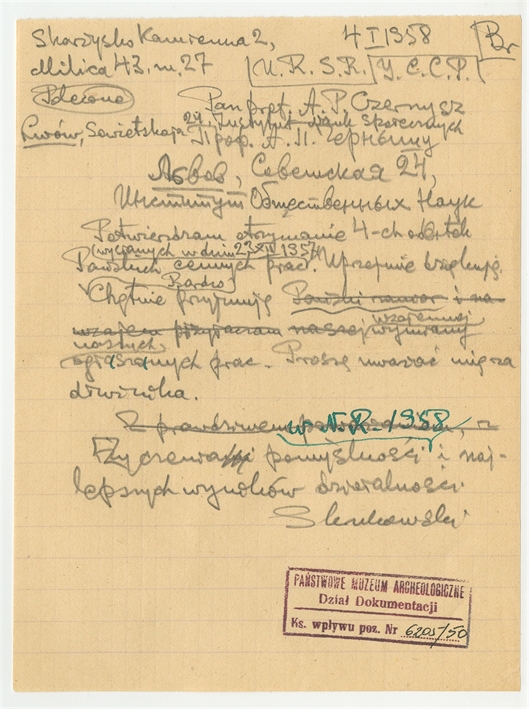 Skarżysko Kamienna 2, 4 I 1958 Br
Milica 43, m. 27 U. R. S. R. У. С. С. Р.
Polecone
Pan prof. A. P. Czernysz
Lwów, Sowietskaja 24, Instytut Nauk Społecznych
Проф. А. П. Черныш
Львов, Советская 24,
Институт Общественных Наук
Potwierdzam otrzymanie 4-ch odbitek
(wysłanych w dniu 27 XII 1957)
Pańskich cennych prac. Uprzejmie dziękuję.
Bardzo
Chętnie przyjmuję
wzajemnej
wzajem naszej wymiany
naszych,
ogłaszanych prac. Proszę uważać mię za
dłużnika.
Z prawdziwem
w N. R. 1958
Życzenia pomyślności i naj-
lepszych wyników działalności
SKrukowski
PAŃSTWOWE MUZEUM ARCHEOLOGICZNE
Dział Dokumentacji
Ks. wpływu poz. Nr 6205/50